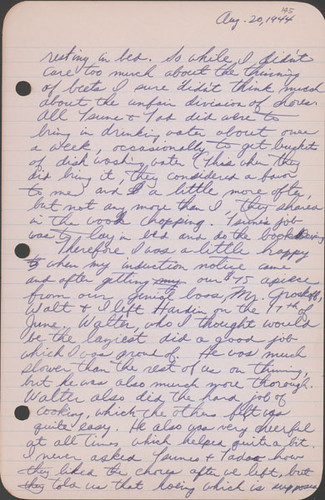 45
Aug. 20, 1944
resting in bed. So while I didn't
care too much about the thinning
of beets I sure didn't think much
about the unfair division of chores.
All Tsune & Tad did were to
bring in drinking water about once
a week, occasionally to get buckets
of dish washing water (This when they
did bring it, they considered a favor
to me) and a little more often,
but not any more than I, they shared
in the wood chopping. Tsune's job
was to lay in bed and do the bookkeeping
Therefore I was a little happy
when my induction notice came
and after getting our $75 apiece
from our genial boss, Mr.
Walt & I left Hardin on the 17th of
June. Walter, who I thought would
be the laziest did a good job
which I was proud of. He was much
slower than the rest of us on thinning,
but he was also much more thorough.
Walter also did the hard job of
cooking, which the others felt was
quite easy. He also was very cheerful
at all times which helped quite a bit.
I never asked Tsune & Tadao how
they liked the chores after we left, but
they told us that hoeing which is supposed